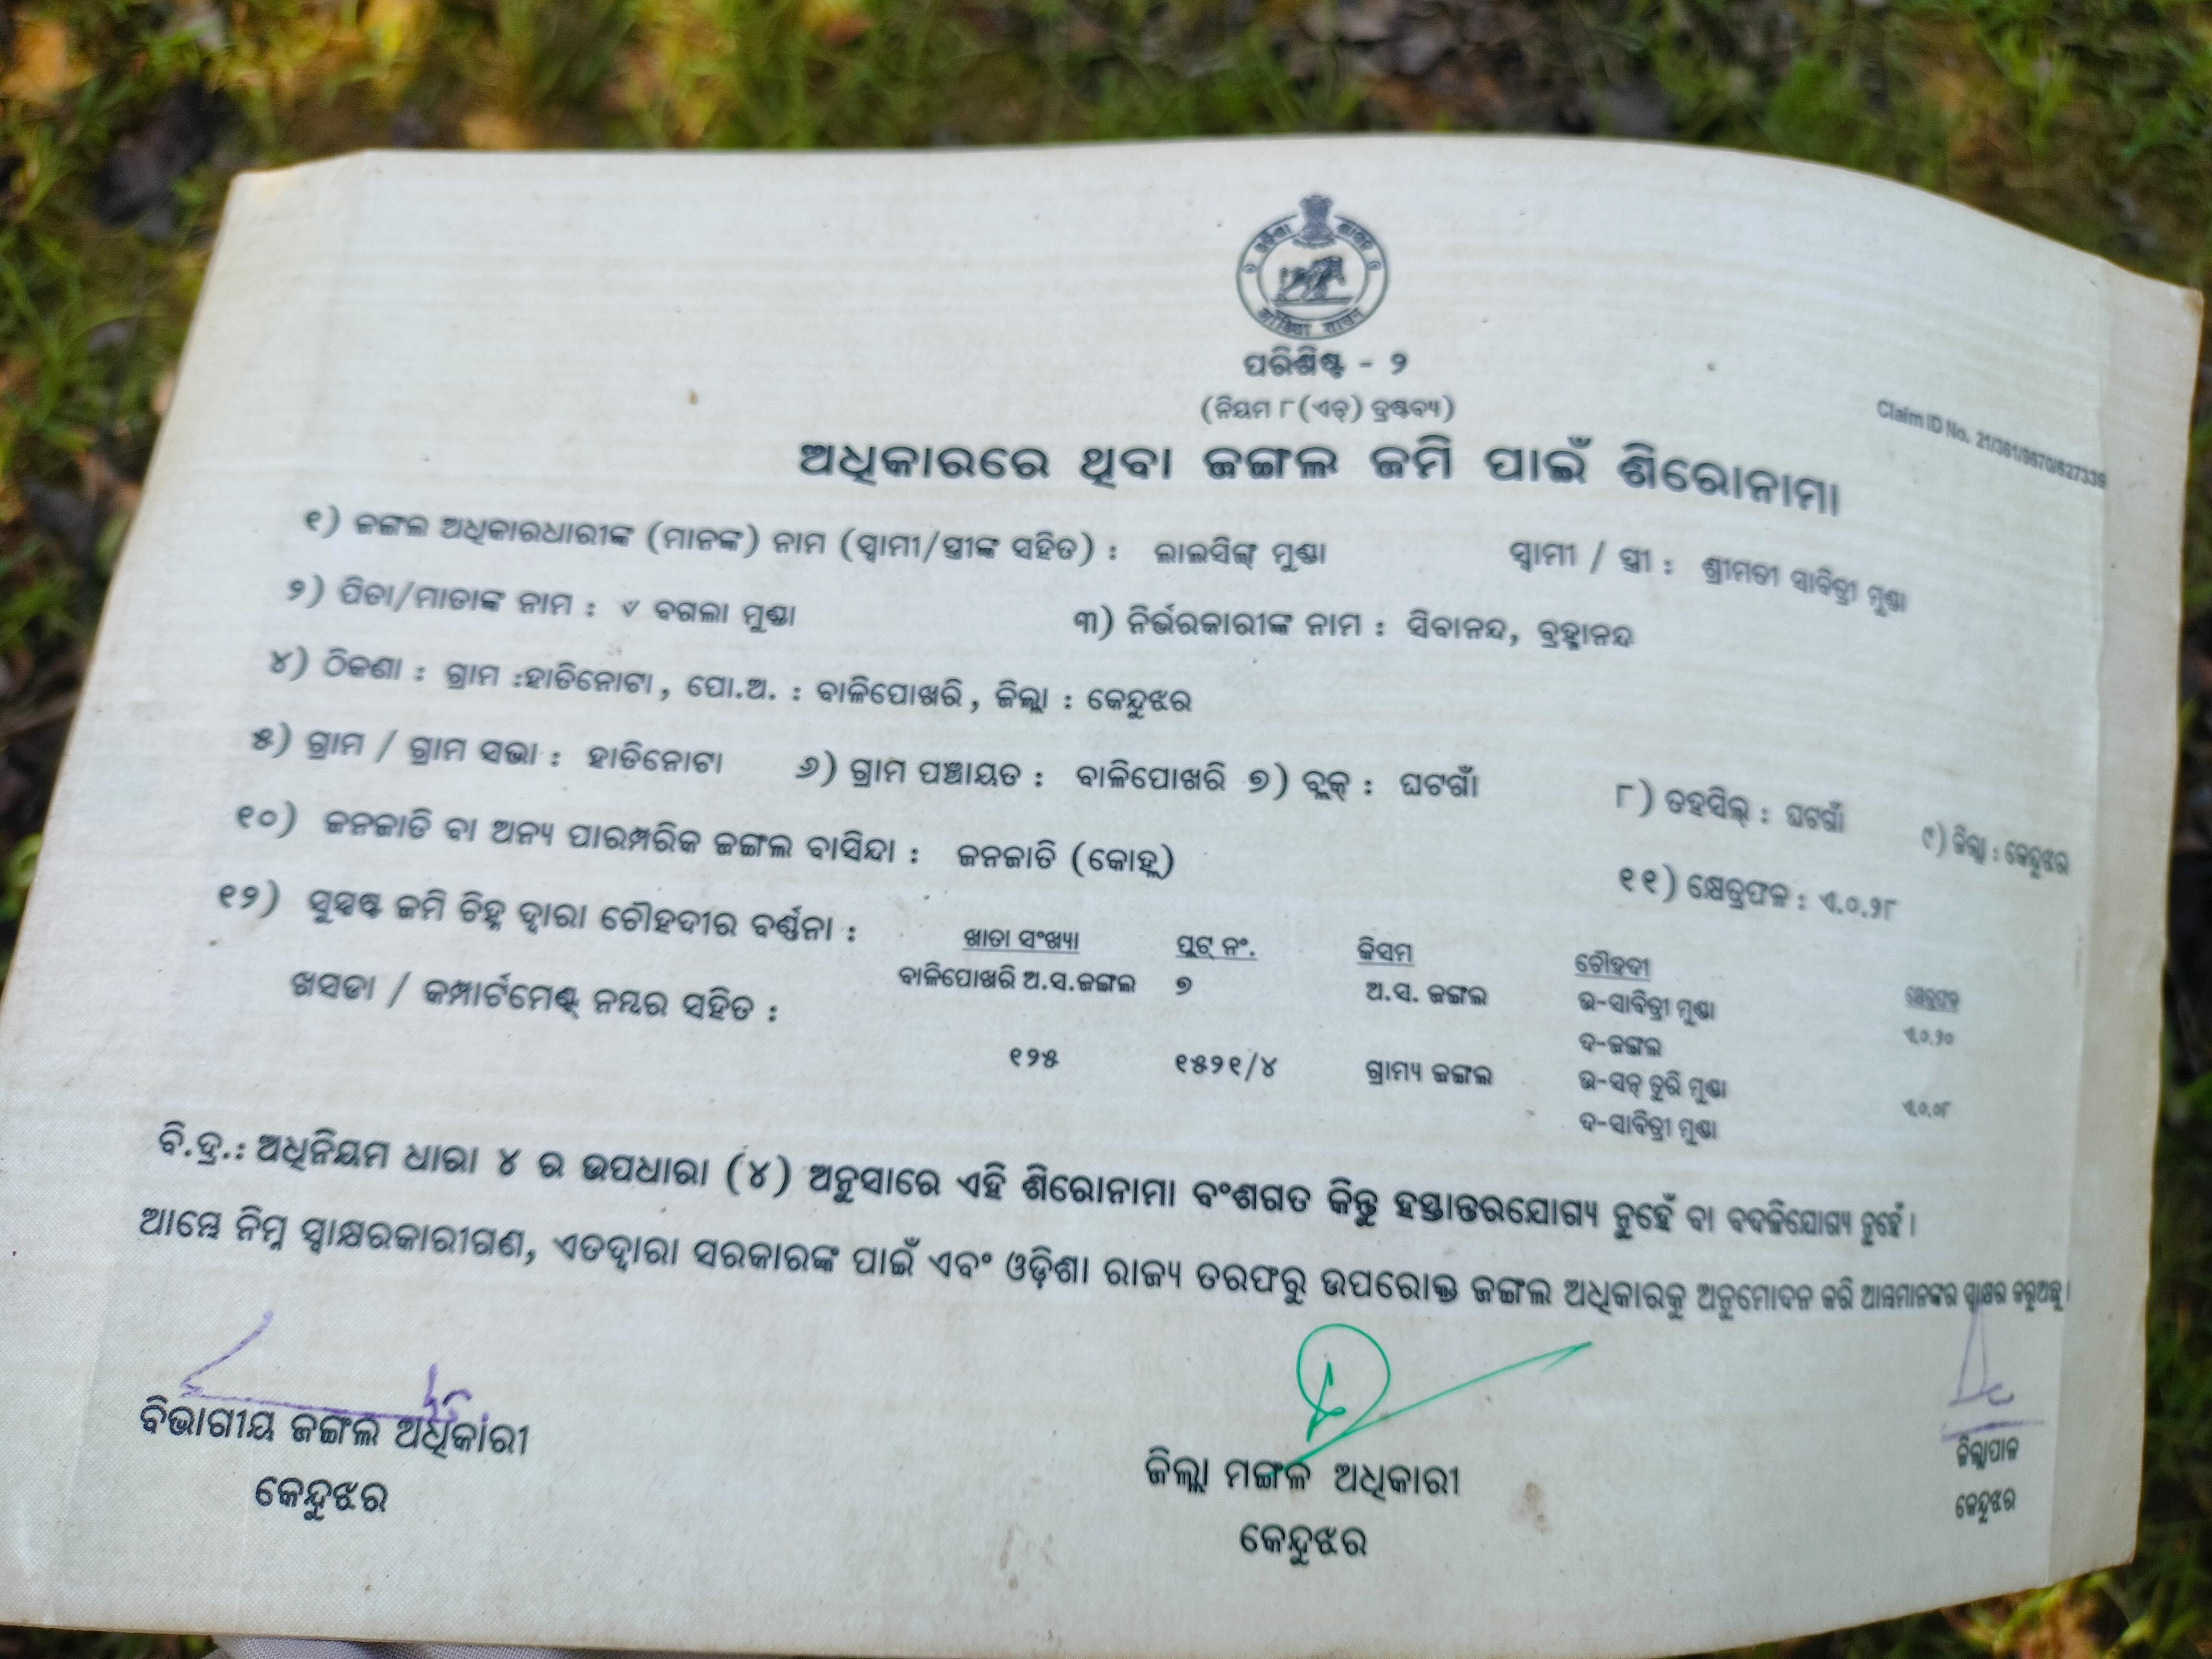 ପରିଶିଷ୍ଟ - ୨
(ନିୟମ ୮(ଏଚ୍) ଦ୍ରଷ୍ଟବ୍ୟ)
Claim ID No. 21/381/9670/627339
ଅଧିକାରରେ ଥିବା ଜଙ୍ଗଲ ଜମି ପାଇଁ ଶିରୋନାମା
୧) ଜଙ୍ଗଲ ଅଧିକାରଧାରୀଙ୍କ (ମାନଙ୍କ) ନାମ (ସ୍ୱାମୀ/ସ୍ତ୍ରୀଙ୍କ ସହିତ) : ଲାଲସିଙ୍ଗ୍ ମୁଣ୍ଡା ସ୍ୱାମୀ / ସ୍ତ୍ରୀ : ଶ୍ରୀମତୀ ସାବିତ୍ରୀ ମୁଣ୍ଡା
୨) ପିତା/ମାତାଙ୍କ ନାମ : ୰ ବଗଲା ମୁଣ୍ଡା ୩) ନିର୍ଭରକାରୀଙ୍କ ନାମ : ସିବାନନ୍ଦ, ବ୍ରହ୍ମାନନ୍ଦ
୪) ଠିକଣା : ଗ୍ରାମ :ହାତିନୋଟା, ପୋ.ଅ. : ବାଳିପୋଖରି, ଜିଲ୍ଲା : କେନ୍ଦୁଝର
୫) ଗ୍ରାମ / ଗ୍ରାମ ସଭା : ହାତିନୋଟା ୬) ଗ୍ରାମ ପଞ୍ଚାୟତ : ବାଳିପୋଖରି ୭) ବ୍ଲକ୍ : ଘଟଗାଁ ୮) ତହସିଲ୍ : ଘଟଗାଁ ୯) ଜିଲ୍ଲା : କେନ୍ଦୁଝର
୧୦) ଜନଜାତି ବା ଅନ୍ୟ ପାରମ୍ପରିକ ଜଙ୍ଗଲ ବାସିନ୍ଦା : ଜନଜାତି (କୋହ୍ଲ) ୧୧) କ୍ଷେତ୍ରଫଳ : ଏ.୦.୨୮
୧୨) ସୁସ୍ପଷ୍ଟ ଜମି ଚିହ୍ନ ଦ୍ୱାରା ଚୌହଦୀର ବର୍ଣ୍ଣନା :
ଖସଡା / କମ୍ପାର୍ଟମେଣ୍ଟ୍ ନମ୍ବର ସହିତ :
ଖାତା ସଂଖ୍ୟା ପ୍ଲଟ୍ ନଂ. କିସମ ଚୌହଦୀ କ୍ଷେତ୍ରଫଳ
ବାଳିପୋଖରି ଅ.ସ.ଜଙ୍ଗଲ ୭ ଅ.ସ. ଜଙ୍ଗଲ ଉ-ସାବିତ୍ରୀ ମୁଣ୍ଡା ଏ.୦.୨୦
ଦ-ଜଙ୍ଗଲ
୧୨୫ ୧୫୨୧/୪ ଗ୍ରାମ୍ୟ ଜଙ୍ଗଲ ଉ-ସନ୍ ତୁରି ମୁଣ୍ଡା ଏ.୦.୦୮
ଦ-ସାବିତ୍ରୀ ମୁଣ୍ଡା
ବି.ଦ୍ର.: ଅଧିନିୟମ ଧାରା ୪ ର ଉପଧାରା (୪) ଅନୁସାରେ ଏହି ଶିରୋନାମା ବଂଶଗତ କିନ୍ତୁ ହସ୍ତାନ୍ତରଯୋଗ୍ୟ ନୁହେଁ ବା ବଦଳିଯୋଗ୍ୟ ନୁହେଁ।
ଆମ୍ଭେ ନିମ୍ନ ସ୍ୱାକ୍ଷରକାରୀଗଣ, ଏତଦ୍ୱାରା ସରକାରଙ୍କ ପାଇଁ ଏବଂ ଓଡ଼ିଶା ରାଜ୍ୟ ତରଫରୁ ଉପରୋକ୍ତ ଜଙ୍ଗଲ ଅଧିକାରକୁ ଅନୁମୋଦନ କରି ଆମ୍ଭମାନଙ୍କର ସ୍ୱାକ୍ଷର କରୁଅଛୁ।
ବିଭାଗୀୟ ଜଙ୍ଗଲ ଅଧିକାରୀ
କେନ୍ଦୁଝର
ଜିଲ୍ଲା ମଙ୍ଗଳ ଅଧିକାରୀ
କେନ୍ଦୁଝର
ଜିଲ୍ଲାପାଳ
କେନ୍ଦୁଝର